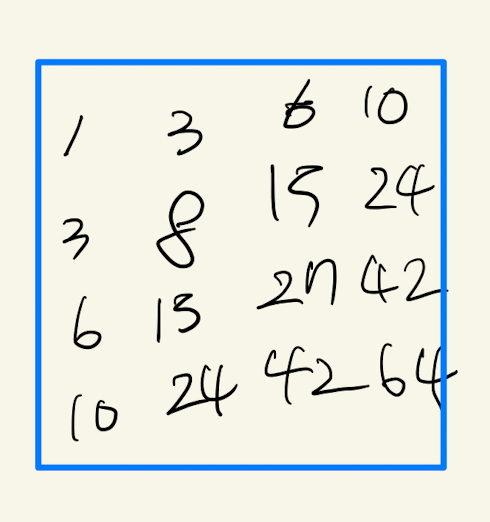 1 3 6 10
3 8 15 24
6 15 27 42
10 24 42 64